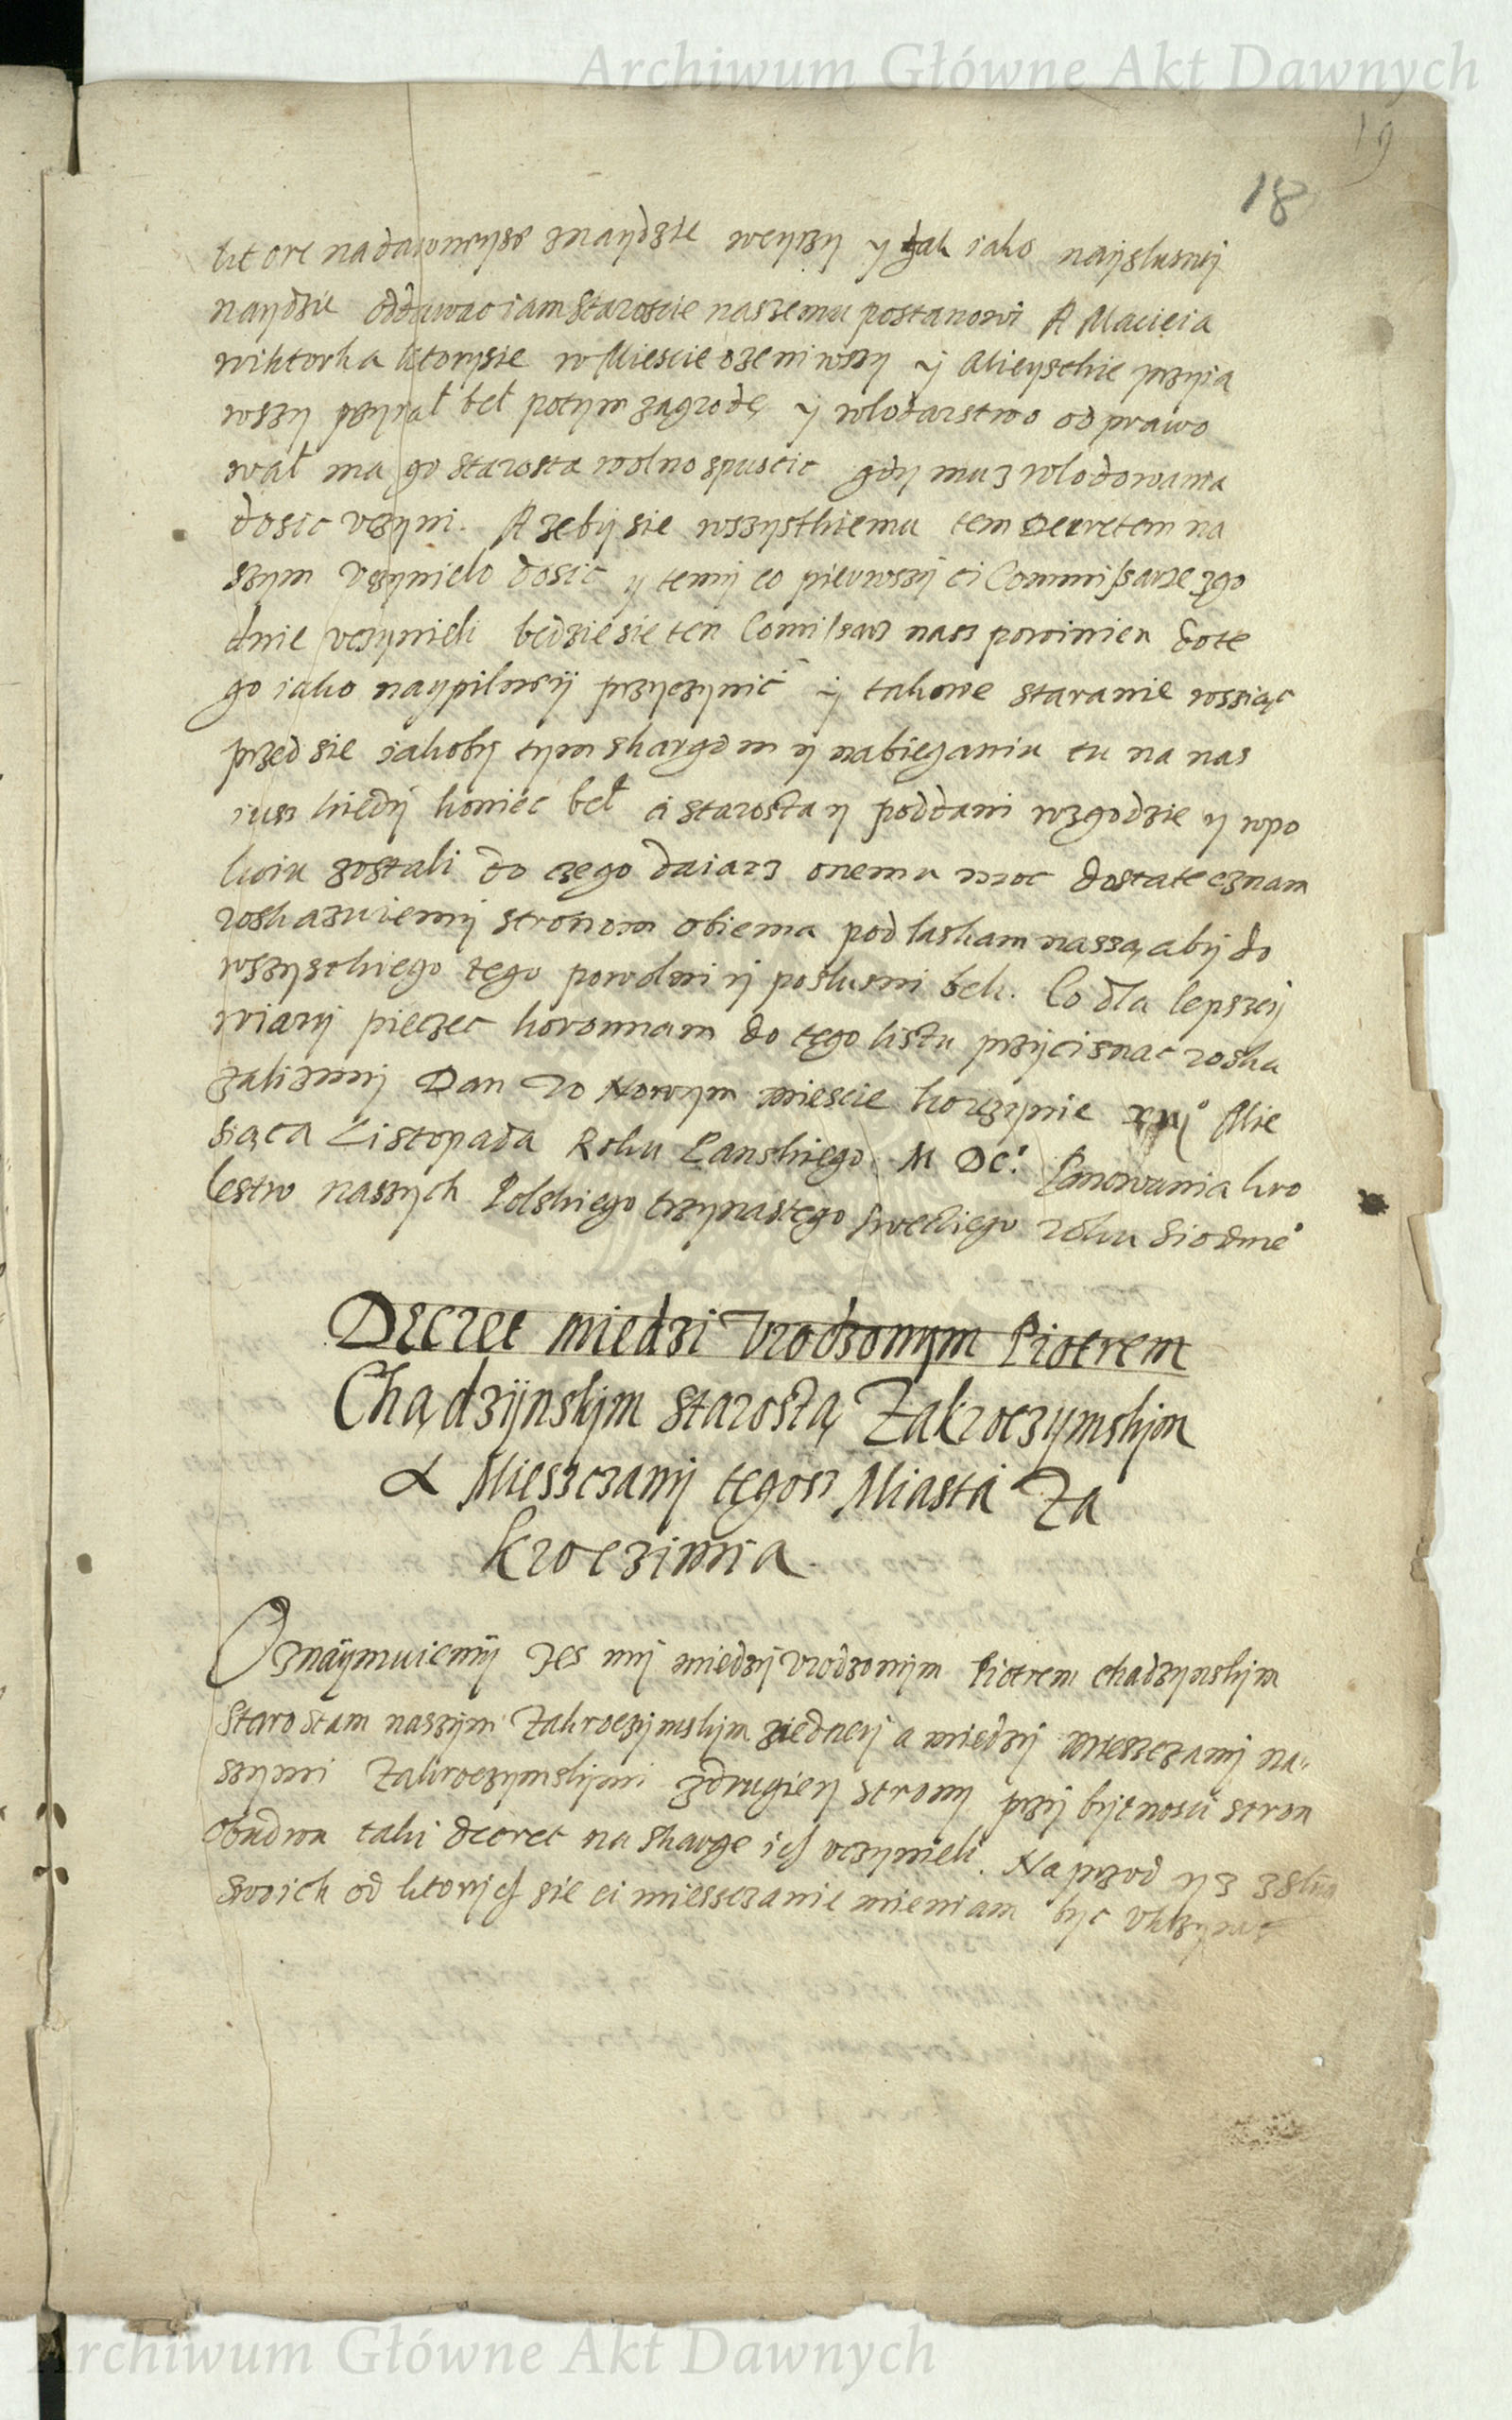 Archiwum Główne Akt Dawnych
19
18
ktore nadawnieysze znaydzie weyzy y tak iako nayslusniej
naydzie oddawac iam Staroscie naszemu postanowi A Macieia
wiktorka ktorysie w Miescie ozeniwszy y Mieyschie przyia
wszy przyiał beł potym zagrodę y wlodarstwo odprawo
wał ma go starosta wolno spuscic gdy mu z wlodowania
dosic vczyni. A zeby sie wszystkiemu tem Decretem na
szym vczynielo dosic y temy co pierwszy ci Commissarze zgo
dnie vczynieli będzie sie ten Comissarz nasz powinien dote
go iako naypilniey przyczynic y takowe staranie wssiąc
przed sie iakoby tym skargom y nabieganiu tu na nas
iusz kiedy koniec beł a starosta y poddani wzgodzie y wpo
koiu zostali do czego daiacz onemu moc dostatecznam
roskazuiemy stronom obiema pod laskam naszą aby do
wszyschiego tego powolni y poslusni beli. Co dla lepszey
wiary pieczec koronnam do tego listu przycisnac roska
zalismy Dan w Nowym miescie korczynie Mie
siąca Listopada Roku Panskiego M DC. Panowania kro
lestw naszych Polskiego trzynastego szweckiego roku siodme°
Decret miedzi Vrodzonym Piotrem
Chądzijnskim starostą Zakroczymskim
A Mieszczany tegosz Miasta Za
kroczimia.
Oznaymuiemy Zes my miedzy Vrodzonym Piotrem chadzynskim
Starostam naszym Zakroczymskim ziedney a miedzy mieszczany na=
szymi Zakroczymskimi zdrugiey strony przy bytnosci stron
obudwu taki decret na skarge ich vczynieli. Naprzod yz
swoich od ktorych sie ci miesszczanie mieniam byc
Archiwum Główne Akt Dawnych